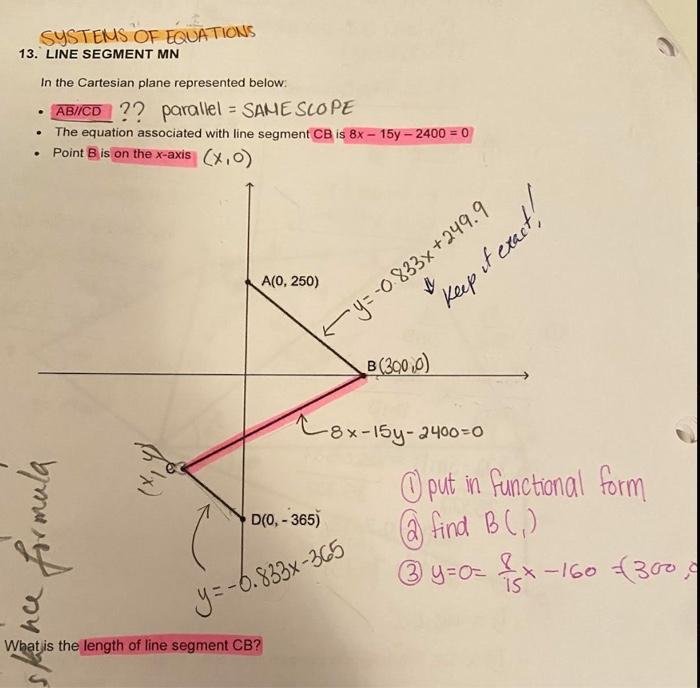 SYSTEMS OF EQUATIONS
13. LINE SEGMENT MN
In the Cartesian plane represented below:
• AB//CD ?? parallel = SAME SLOPE
• The equation associated with line segment CB is 8x – 15y – 2400 = 0
• Point B is on the x-axis (x,0)
y=-0.833x+249.9
keep it exact!
A(0, 250)
B(300,0)
8x-15y-2400=0
(x,y)
C
D(0, - 365)
y=-0.833x-365
① put in functional form
② find B(,)
③ y=0= 8/15 x -160 =(300,
formula
What is the length of line segment CB?